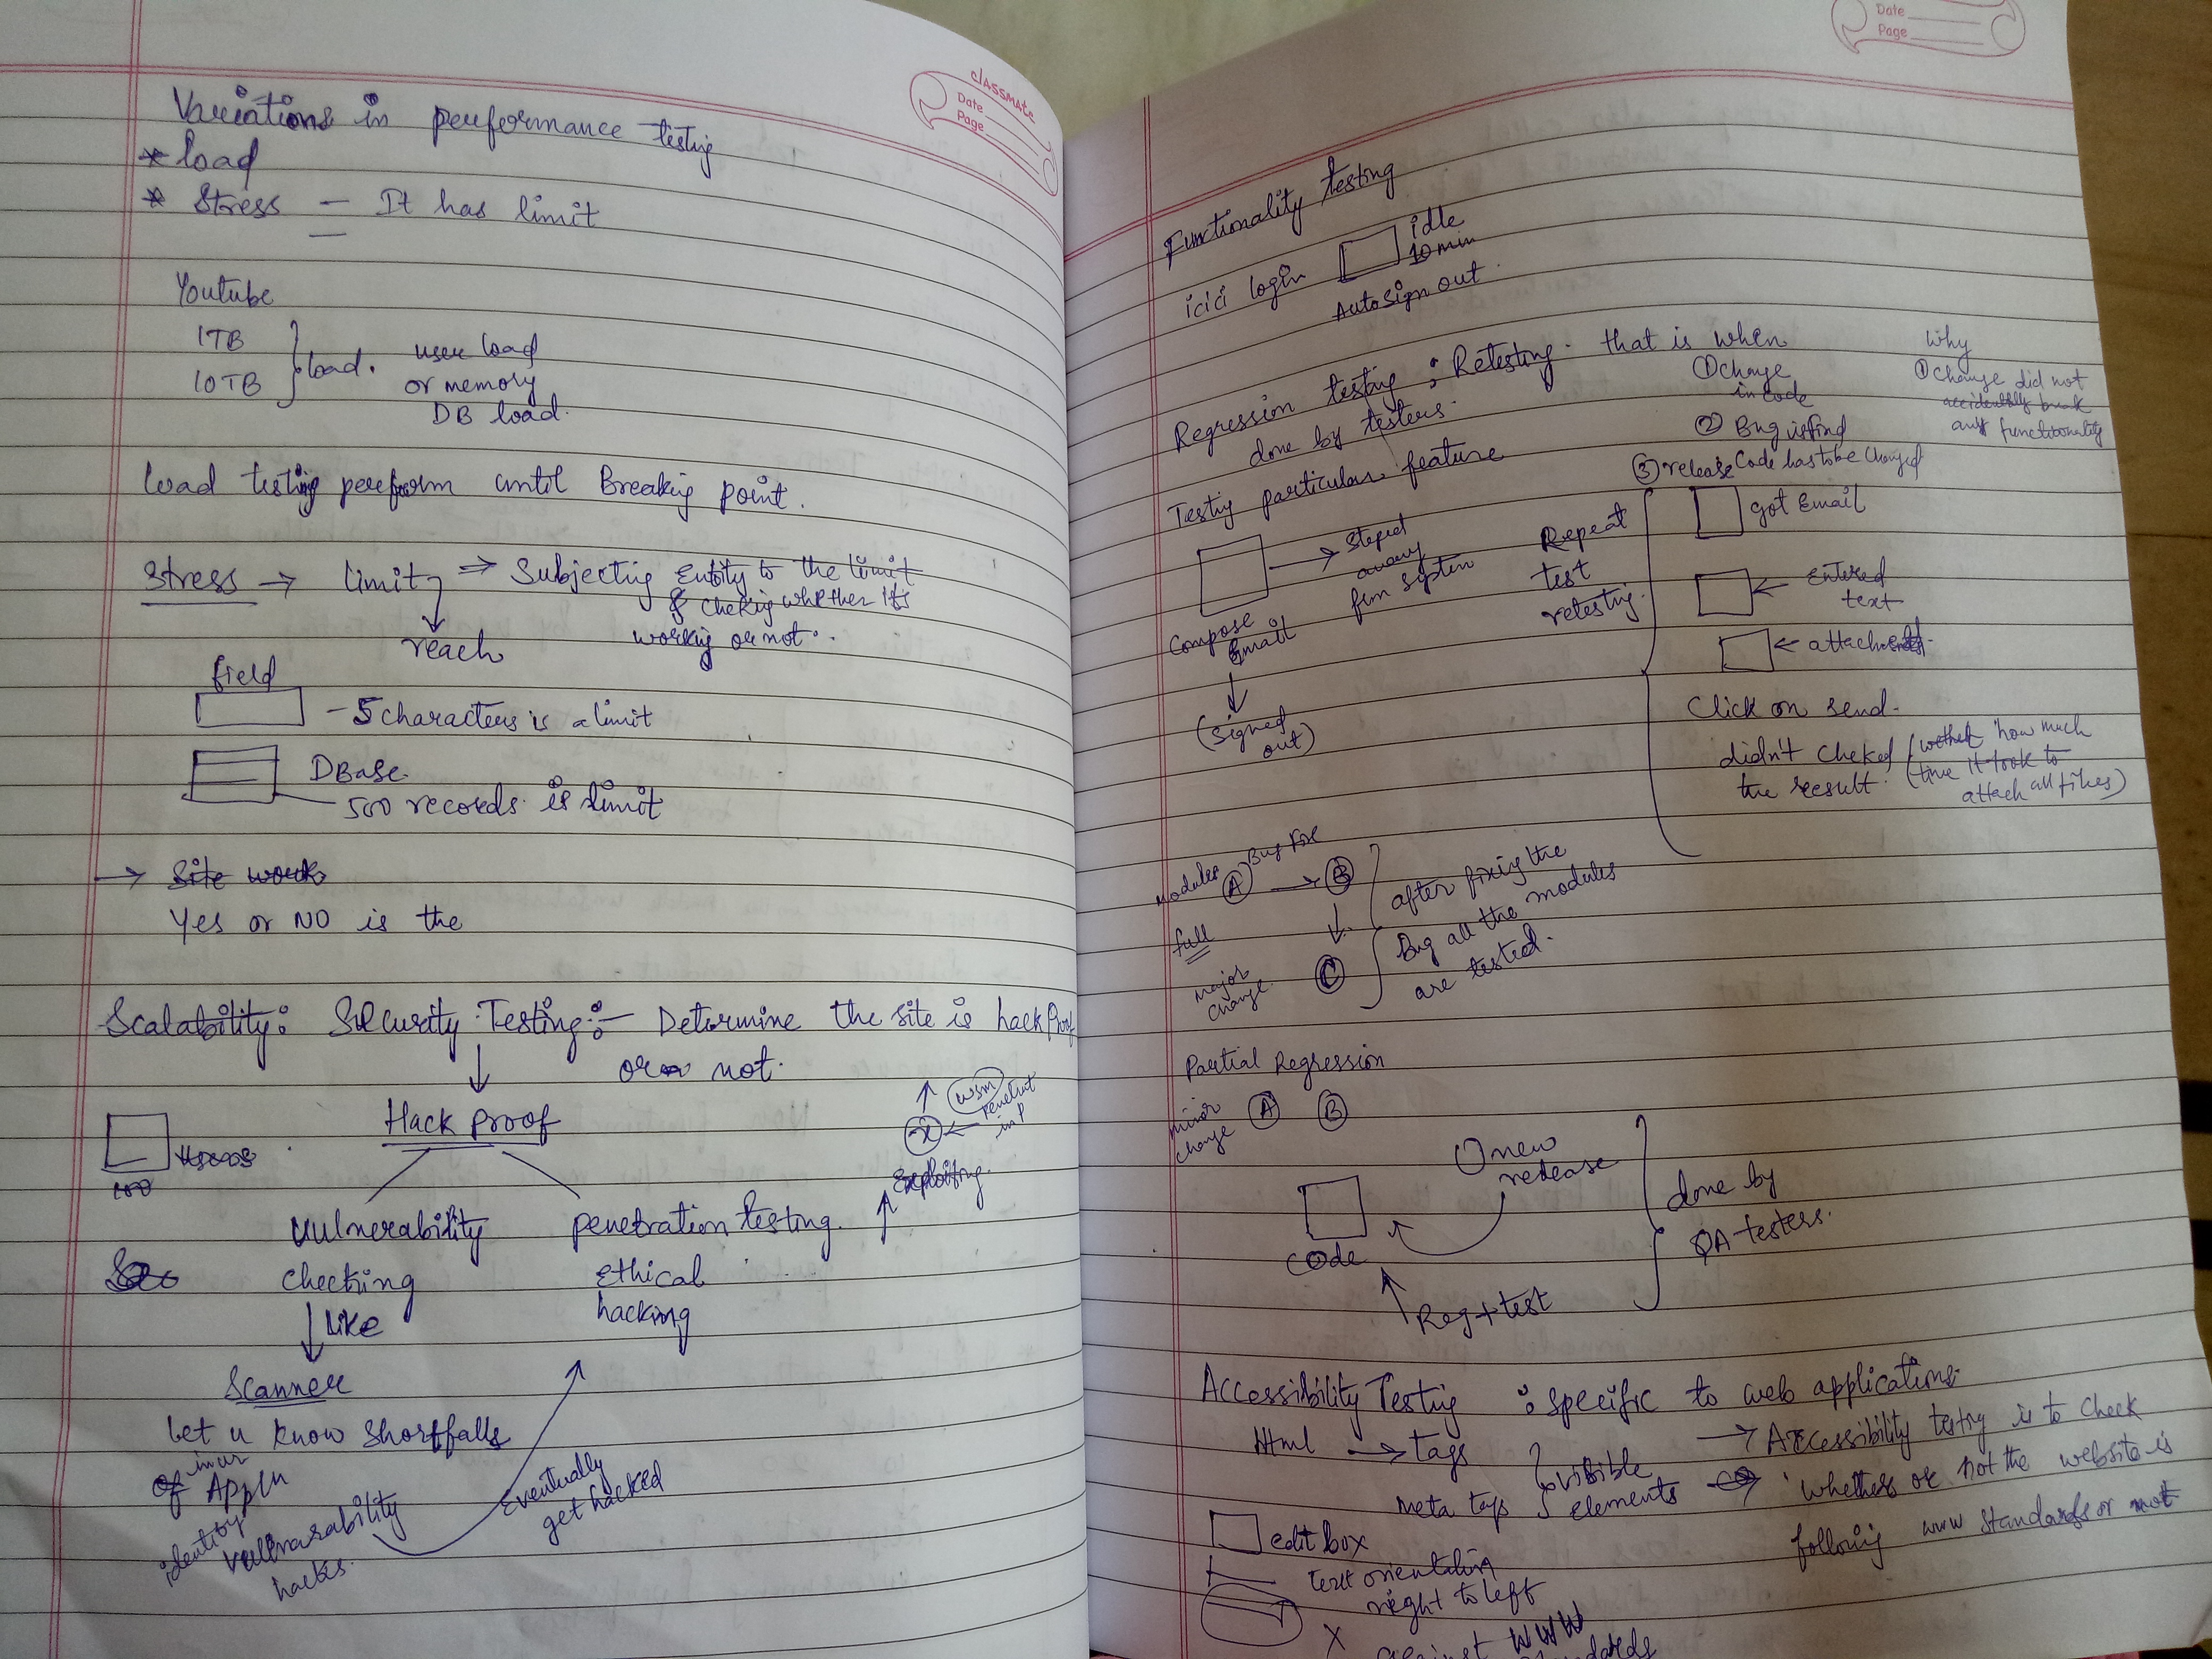 classmate
Date
Page
Variations in performance testing
* load
* Stress - It has limit
Youtube
1TB
10TB
load.
user load
or memory
DB load.
Load testing perform until Breaking point.
Stress → limit ⇒ Subjecting Entity to the limit
& cheking whether it's
working or not.
reach
field
- 5 characters is a limit
DBase
500 records is limit
→ Site work
Yes or NO is the
Scalability: Security Testing:- Determine the site is hack Proof
or not.
Hack proof
100
WSM
penetrat
Exploiting.
Vulnerability
checking
penetration testing.
Ethical
hacking
like
Scanner
let u know shortfalls
of in ur Appln
identify
hacks.
Eventually
get hacked
Date
Page
Functionality testing
icici login
idle
10 min
Auto sign out.
Regression testing : Retesting. that is when
done by testers.
① change
in code
② Bug is find
③ release Code has to be changed
Why
① change did not
accidentally break
any functionality
Testig particular feature
→ Steped
away
frm system
Compose
Email
(Signed
out)
Repeat
test
retestig.
got Email
← Entered
text
← attachments.
Click on send.
didn't cheked
the result.
(whether how much
time it took to
attach all files)
Modules
A → B
Bug fix
↓
C
full
Major
change.
after fixig the
Bug all the modules
are tested.
Partial Regression
minor
change
A B
① new
release
code
Reg + test
done by
QA testers.
Accessibility Testig : specific to web applications.
Html → tags
meta tags
visible
elements
→ Accessibility testig is to check
whether or not the website is
following www standards or not
edit box
text orientation
right to left
X
against WWW